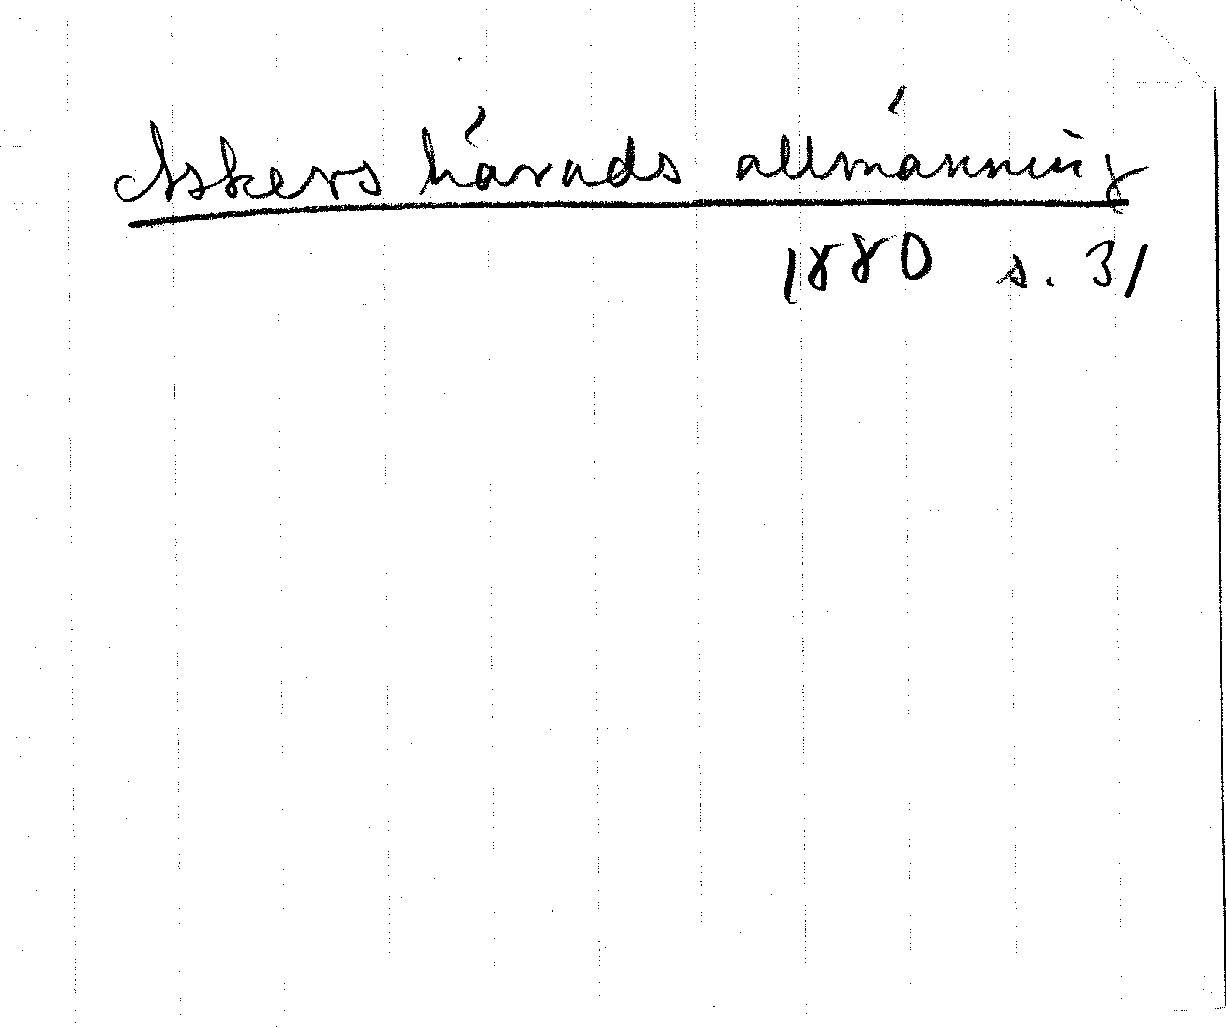 Askers härads allmänning
1880 s. 31